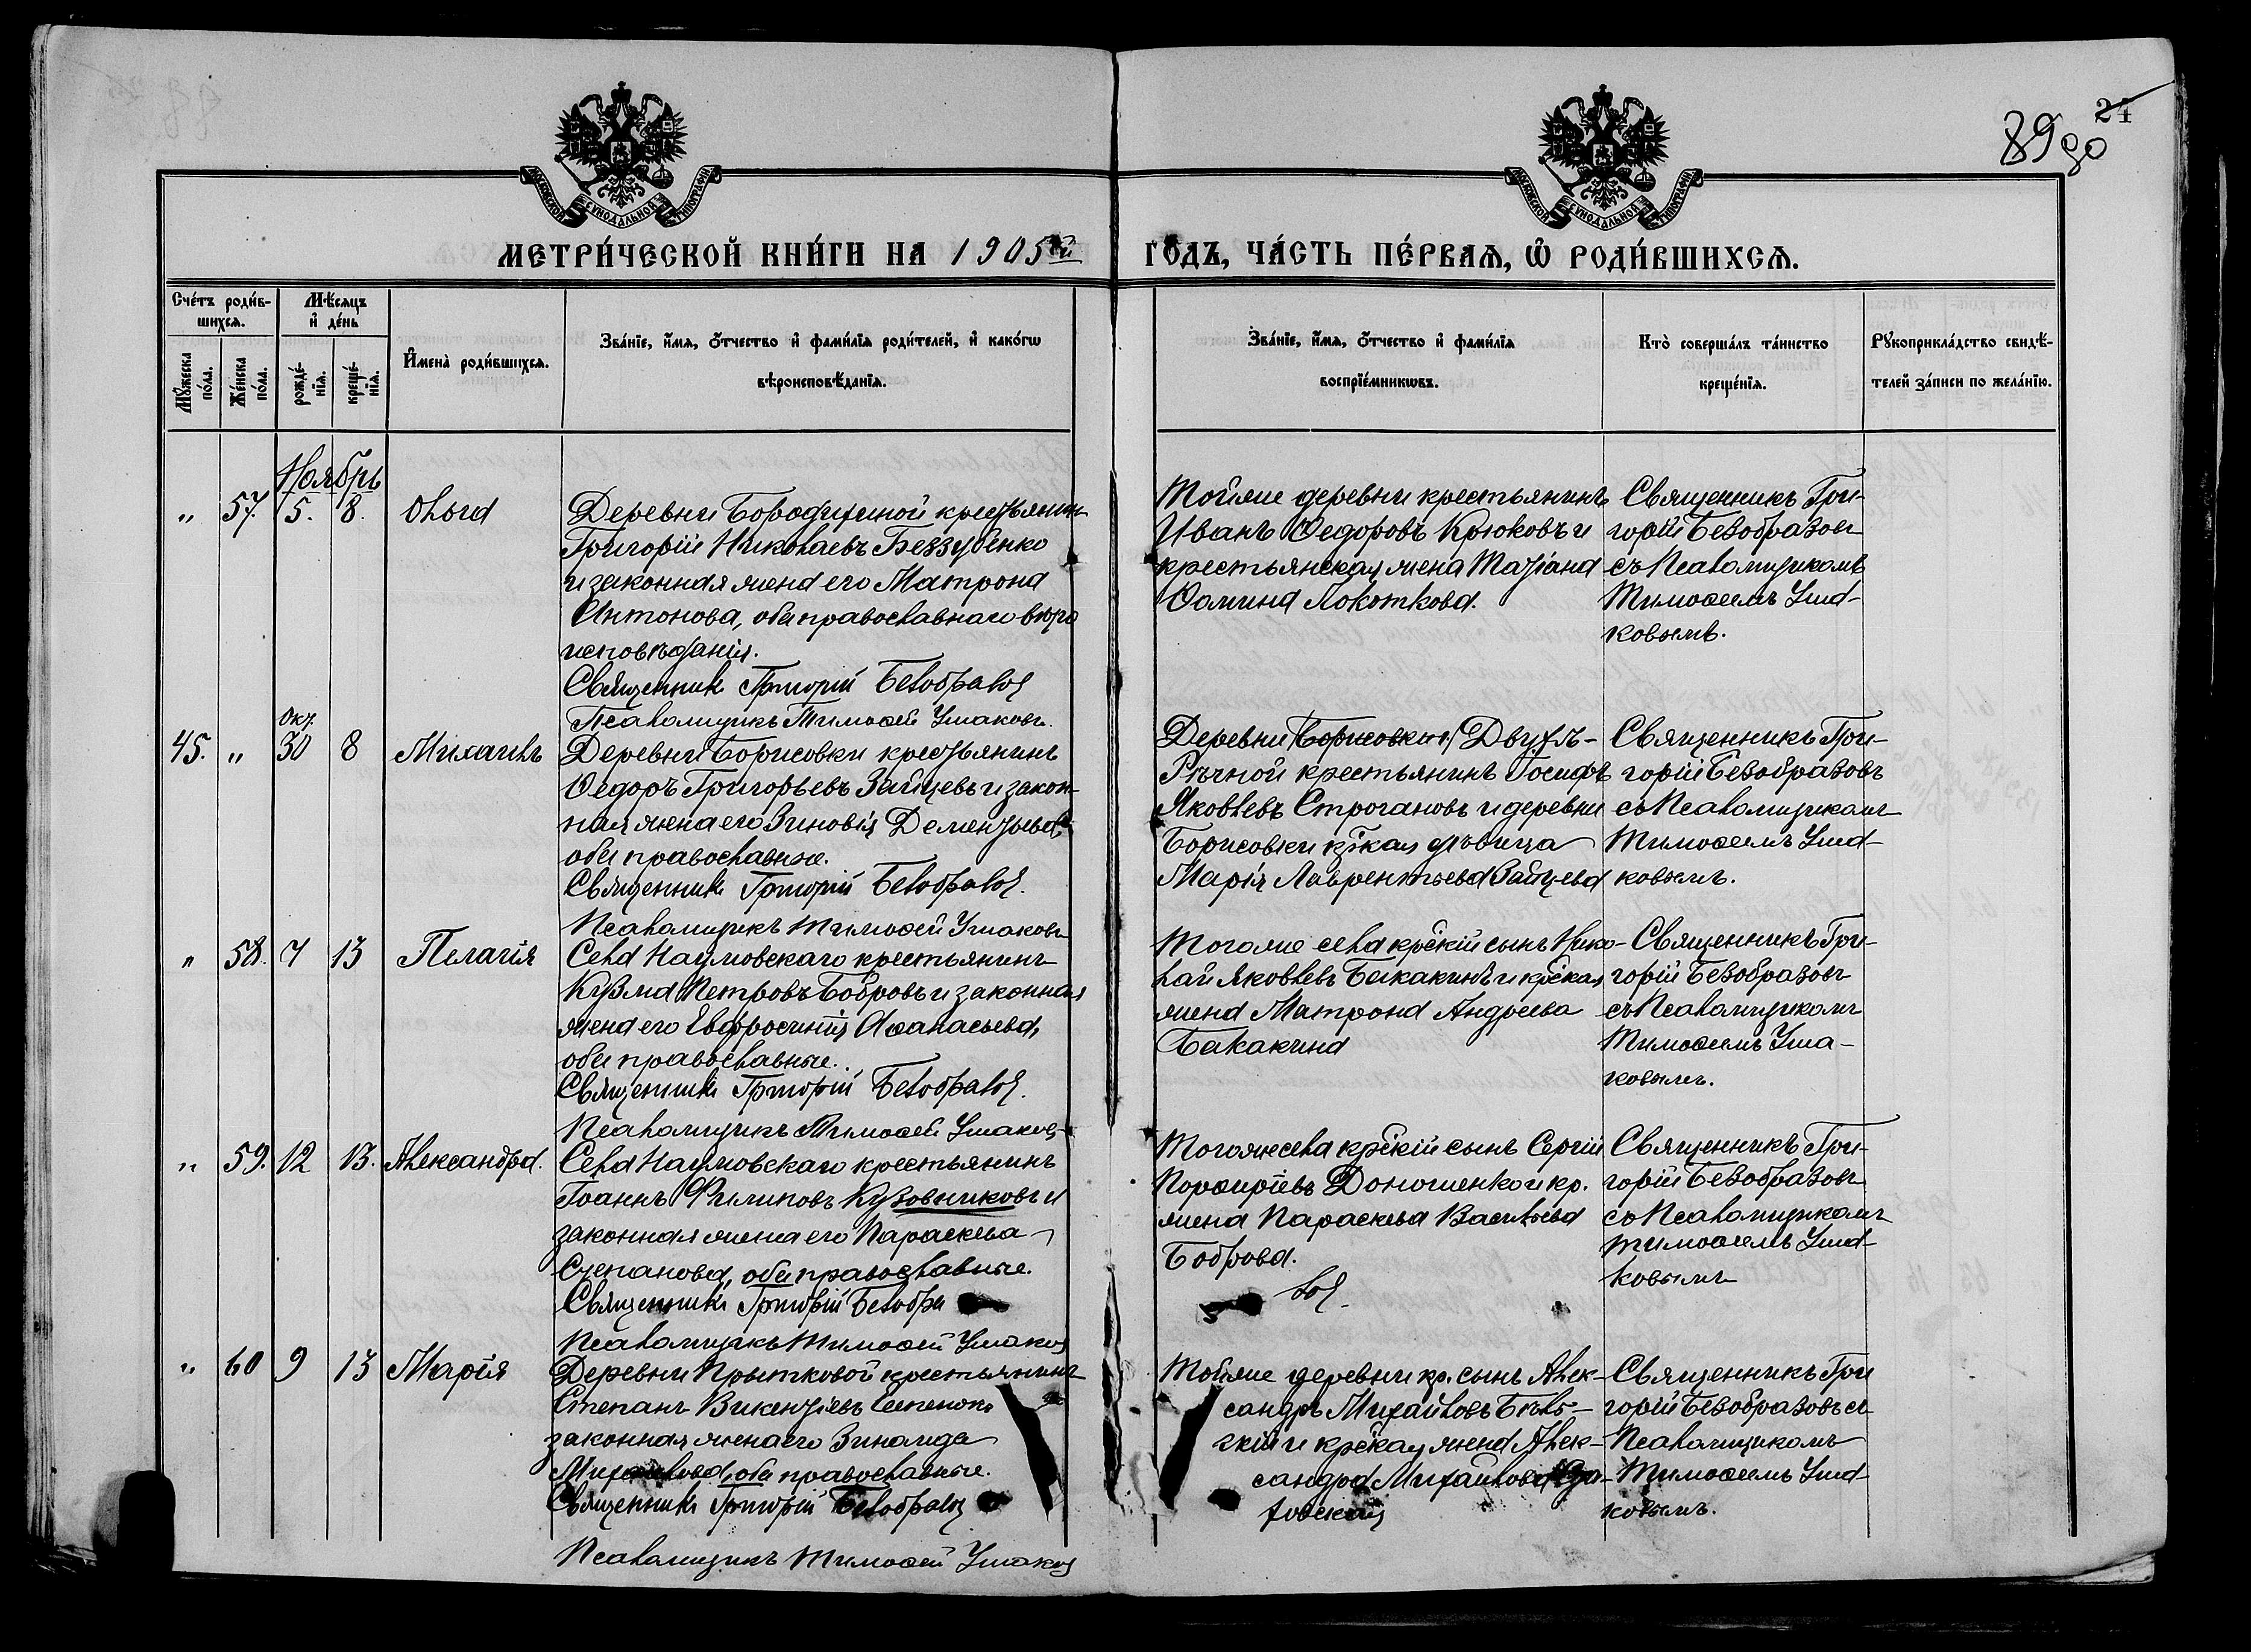 24
89 90
МОСКОВСКОЙ СѴНОДАЛЬНОЙ ТИПОГРАФІИ
МОСКОВСКОЙ СѴНОДАЛЬНОЙ ТИПОГРАФІИ
МЕТРИ́ЧЕСКОЙ КНИ́ГИ НА 1905й ГО́ДЪ, ЧА́СТЬ ПЕ́РВАѦ, Ѡ҆ РОДИ́ВШИХСѦ.
Сче́тъ роди́в-
шихсѧ.
Мѣ́сѧцъ
и҆ де́нь
Мꙋ́жеска по́ла.
Же́нска по́ла.
рожде́-
нїѧ.
креще́-
нїѧ.
И҆мена̀ роди́вшихсѧ.
Зва́нїе, и҆́мѧ, ѻ҆́тчество и҆ фами́лїѧ роди́телей, и҆ како́гѡ
вѣроисповѣ́данїѧ.
Зва́нїе, и҆́мѧ, ѻ҆́тчество и҆ фами́лїѧ
воспрїе́мникѡвъ.
Кто̀ соверша́лъ та́инство
креще́нїѧ.
Рꙋкоприкла́дство свидѣ́-
телей за́писи по жела́нїю.
Ноябрь
" 57. 5. 8. Ольга
Деревни Бородихиной крестьянин
Григорій Николаевъ Беззубенко
и законная жена его Матрона
Антонова, оба православнаго вѣро
исповѣданія.
Священникъ Григорій Безобразов
Псаломщикъ Тимоѳей Ушаковъ.
Тойже деревни крестьянинъ
Иванъ Ѳедоровъ Крюковъ и
крестьянская жена Татіана
Ѳомина Локоткова.
Священникъ Гри-
горій Безобразовъ
съ Псаломщикомъ
Тимоѳеемъ Уша-
ковымъ.
Окт.
45. " 30 8 Михаилъ
Деревни Борисовки крестьянинъ
Ѳедоръ Григорьевъ Зайцевъ и закон-
ная жена его Зиновія Дементьева,
оба православные.
Священникъ Григорій Безобразов.
Псаломщикъ Тимоѳей Ушаковъ
Деревни (Борисовки) Двухъ-
Рѣчной крестьянинъ Іосифъ
Яковлевъ Строгановъ и деревни
Борисовки кр̃ская дѣвица
Марія Лаврентьева Зайцева
Священникъ Гри-
горій Безобразовъ
съ Псаломщикомъ
Тимоѳеемъ Уша-
ковымъ.
" 58. 7 13 Пелагія
Села Наумовскаго крестьянинъ
Кузма Петровъ Бобровъ и законная
жена его Евфросинія Аѳанасьева,
оба православные.
Священникъ Григорій Безобразов.
Псаломщикъ Тимоѳей Ушаковъ
Тогоже села кр̃скій сынъ Нико-
лай Яковлевъ Бакакинъ и кр̃ская
жена Матрона Андреева
Бакакина
Священникъ Гри-
горій Безобразовъ
съ Псаломщикомъ
Тимоѳеемъ Уша-
ковымъ.
" 59. 12 13. Александра.
Села Наумовскаго крестьянинъ
Іоаннъ Филиповъ Кузовниковъ и
законная жена его Параскева
Степанова, оба православные.
Священникъ Григорій Безобра
зов.
Псаломщикъ Тимоѳей Ушаков
Тогоже села кр̃скій сынъ Сергій
Порфиріевъ Доношенко и кр.
жена Параскева Васильева
Боброва.
Священникъ Гри-
горій Безобразовъ
съ Псаломщикомъ
Тимоѳеемъ Уша-
ковымъ
" 60 9 13 Марія
Деревни Прытковой крестьянинъ
Степанъ Викентіевъ
законная жена его Зинаида
Михайлова, оба православные.
Священникъ Григорій Безобразов
Псаломщикъ Тимоѳей Ушаков
Тойже деревни кр. сынъ Алек-
сандръ Михайловъ Бѣль-
скій и кр̃ская жена Алек-
сандра Михайлова
Священникъ Гри
горій Безобразовъ съ
Псаломщикомъ
Тимоѳеемъ Уша-
ковымъ.